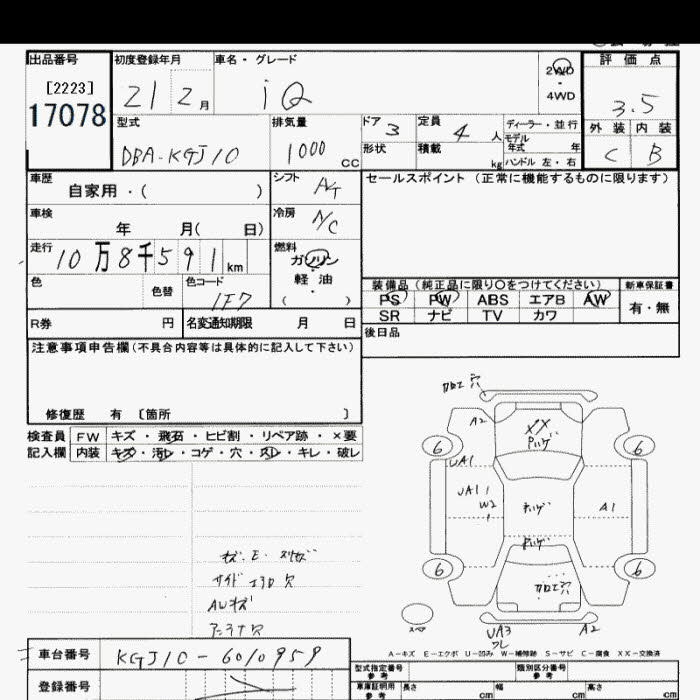 出品番号 初度登録年月 車名・グレード 2WD・4WD 評価点
[2223]
17078
21 2月 iQ 3.5
型式 排気量 ドア 3 定員 4人 ディーラー・並行 外装 内装
DBA-KGJ10 1000cc 形状 積載 kg モデル年式 年 C B
ハンドル 左・右
車歴 自家用・( ) シフト A/T セールスポイント(正常に機能するものに限ります)
車検 年 月( 日) 冷房 A/C
走行 10万8千591km 燃料 ガソリン
軽油
( )
色 色替 色コード 1F7
装備品(純正品に限り○をつけてください) 新車保証書
PS PW ABS エアB AW 有・無
SR ナビ TV カワ
R券 円 名変通知期限 月 日 後日品
注意事項申告欄(不具合内容等は具体的に記入して下さい)
修復歴 有 〔箇所 〕
検査員 FW キズ・飛石・ヒビ割・リペア跡・×要
記入欄 内装 キズ・汚レ・コゲ・穴・スレ・キレ・破レ
加工穴
A2
XX
ハゲ
6 6
UA1
UA1
W2
ハゲ
A1
ハゲ
6 6
加工穴
スペア
UA3
ワレ
A2
キズ・E・
サイドエアロ穴
AWキズ
アンテナ穴
A-キズ E-エクボ U-凹み W-補修跡 S-サビ C-腐食 XX-交換済
車台番号 KGJ10-6010959
型式指定番号 参考 類別区分番号 参考
登録番号 車庫証明用 参考 長さ cm 幅 cm 高さ cm